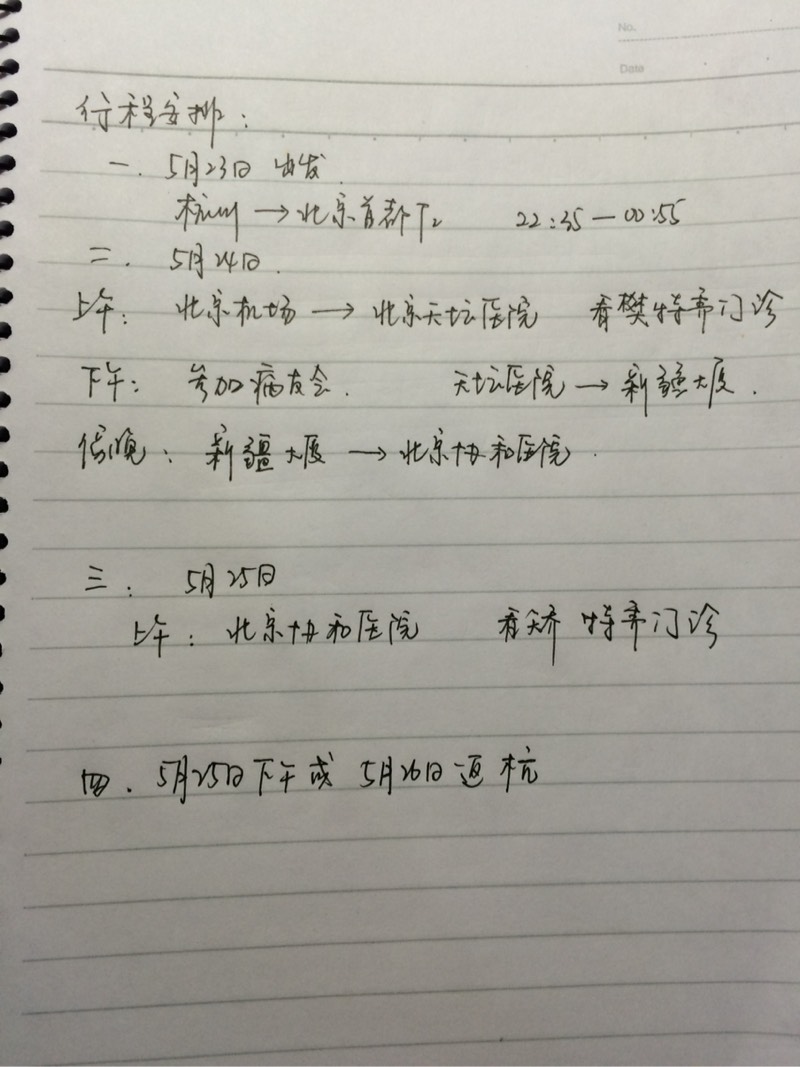 No.
Date
行程安排：
一. 5月23日 出发.
杭州 → 北京首都T2 22:35—00:55
二. 5月24日.
上午: 北京机场 → 北京天坛医院 看樊特需门诊
下午: 参加病友会. 天坛医院 → 新疆大厦.
傍晚: 新疆大厦 → 北京协和医院.
三: 5月25日
上午: 北京协和医院 看矫 特需门诊
四. 5月25日下午或 5月26日返杭